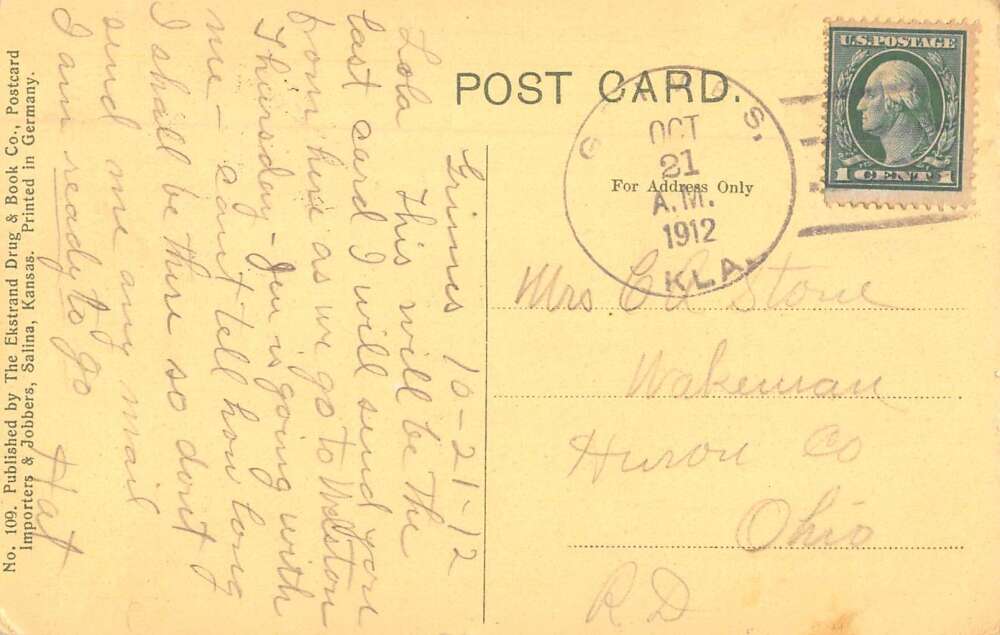 POST CARD.
For Address Only
U.S. POSTAGE
1 CENT 1
OCT
21
A.M.
1912
OKLA.
Mrs C A Stone
Wakeman
Huron Co
Ohio
R D
Grimes 10-21-12
Lola
This will be the
last card I will send you
from here as we go to Welston
Thursday - Jen is going with
me - cant tell how long
I shall be there so dont
send me any mail
I am ready to go
Hat
No. 109. Published by The Ekstrand Drug & Book Co., Postcard
Importers & Jobbers, Salina, Kansas. Printed in Germany.